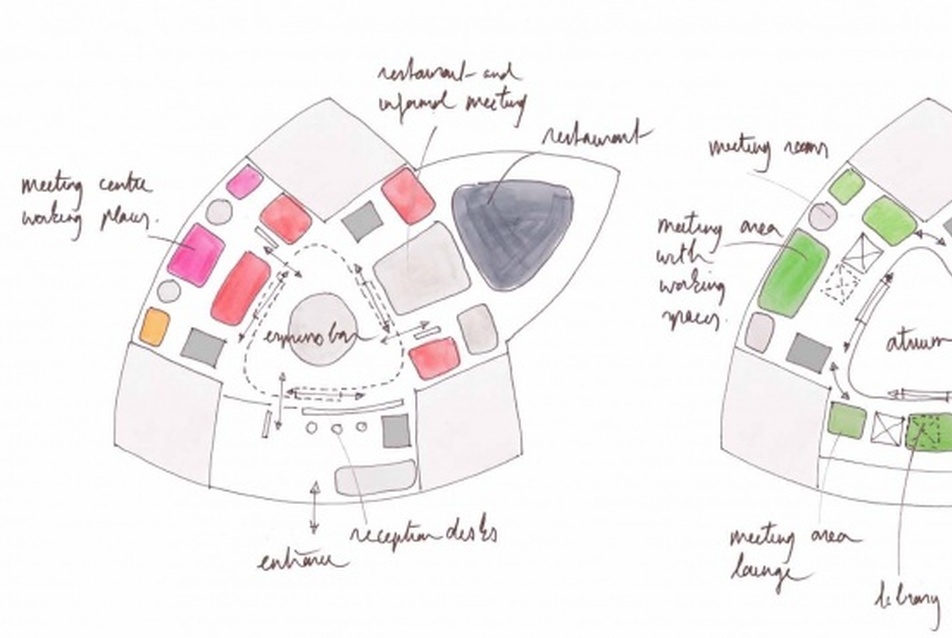 restaurant and
informal meeting
restaurant
meeting centre
working places.
espresso bar
reception desks
entrance
meeting rooms
meeting area
with
working
spaces.
atrium
meeting area
lounge
library